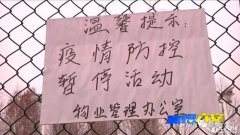 温馨提示:
疫情防控
暂停活动
物业管理办公室